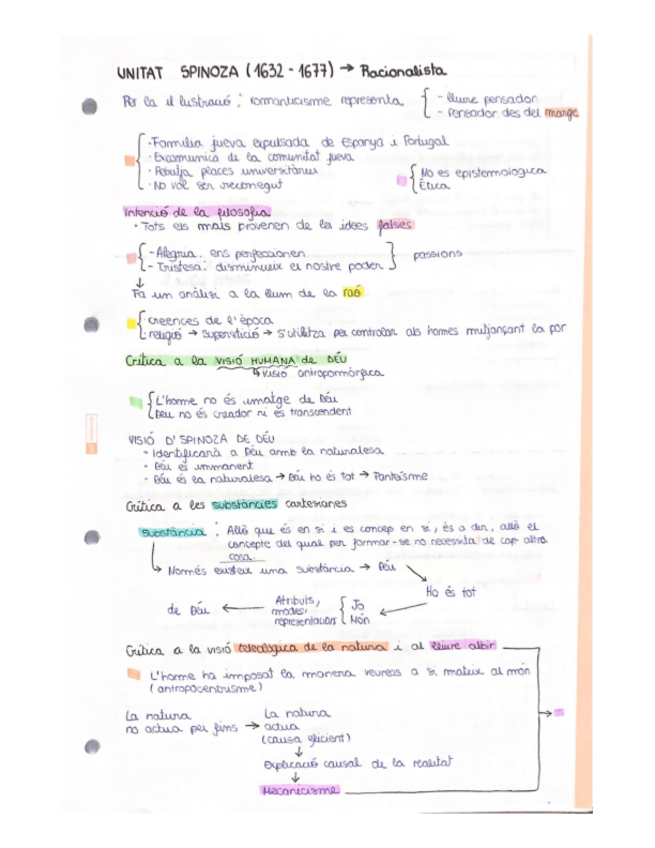 UNITAT SPINOZA (1632 - 1677) → Racionalista
Per la il·lustració ; romanticisme representa { - lliure pensador
- Pensador des del marge
· Família jueva expulsada de Espanya i Portugal
· Excomunica de la comunitat jueva
· Rebutja places universitàries
· No vol ser reconegut
{ No es epistemologica
Ètica
Intenció de la filosofia
· Tots els mals provenen de les idees falses
{ - Alegria: ens perfeccionen
- Tristesa: disminueix el nostre poder } passions
↓
Fa un anàlisi a la llum de la raó
{ creences de l'època
religió → Superstició → S'utilitza per controlar als homes mitjançant la por
Crítica a la VISIÓ HUMANA de DÉU
↳ visió antropomòrfica
{ L'home no és imatge de Déu
Déu no és creador ni és transcendent
VISIÓ D'SPINOZA DE DÉU
· Identificarà a Déu amb la naturalesa
· Déu és immanent
· Déu és la naturalesa → Déu ho és tot → Panteisme
Crítica a les substàncies cartesianes
Substància : Allò que és en si i es concep en si, és a dir, allò el
concepte del qual per formar-se no necessita de cap altra
cosa.
↳ Només existeix una substància → Déu
Ho és tot
de Déu ← Atributs, modes, representacions { Jo
Món
Crítica a la visió teleològica de la natura i al lliure albir
L'home ha imposat la manera veure's a si mateix al món
(antropocentrisme)
La natura
no actua per fins → La natura
actua
(causa eficient)
↓
Explicació causal de la realitat
↓
Mecanicisme